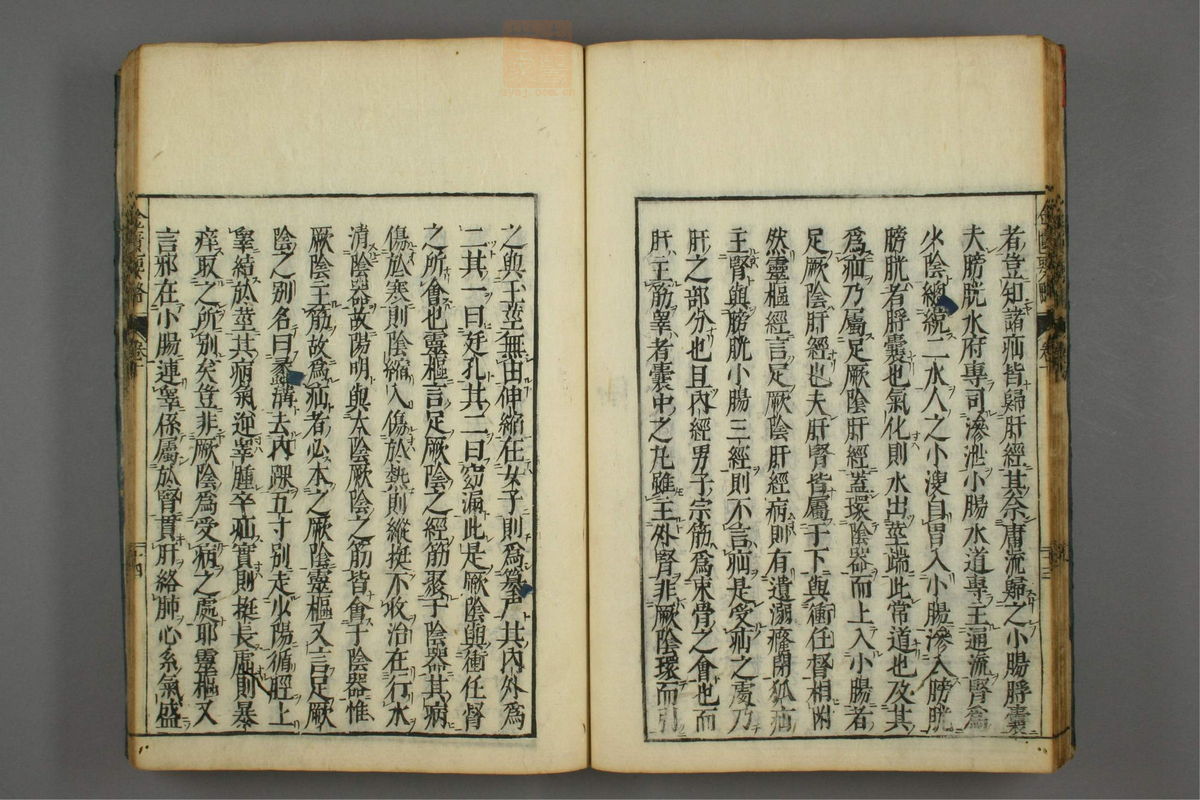 者豈知諸疝皆歸肝經其奈庸流歸之小腸脬囊
夫膀胱水府專司滲泄小腸水道專主通流腎爲
少陰總統二水人之小溲自胃入小腸滲入膀胱
膀胱者脬囊也氣化則水出莖端此常道也及其
爲疝乃屬足厥陰肝經蓋環陰器而上入小腸者
足厥陰肝經也夫肝腎皆屬于下與衝任督相附
然靈樞經言足厥陰肝經病則有遺溺癃閉狐疝
主腎與膀胱小腸三經則不言疝是受疝之處乃
肝之部分也且內經男子宗筋爲束骨之會也而
肝主筋睾者囊中之丸雖主外腎非厥陰環而引
之與玉莖無由伸縮在女子則爲篡戶其內外爲
二其一曰廷孔其二曰窈漏此是厥陰與衝任督
之所會也靈樞言足厥陰之經筋聚于陰器其病
傷於寒則陰縮入傷於熱則縱挺不收治在行水
清陰器故陽明與太陰厥陰之筋皆會于陰器惟
厥陰主筋故爲疝者必本之厥陰靈樞又言足厥
陰之別名曰蠡溝去內踝五寸別走少陽循脛上
睾結於莖其病氣逆睾腫卒疝實則挺長虛則暴
痒取之所別矣豈非厥陰爲受病之處耶靈樞又
言邪在小腸連睾係屬於腎貫肝絡肺心系氣盛